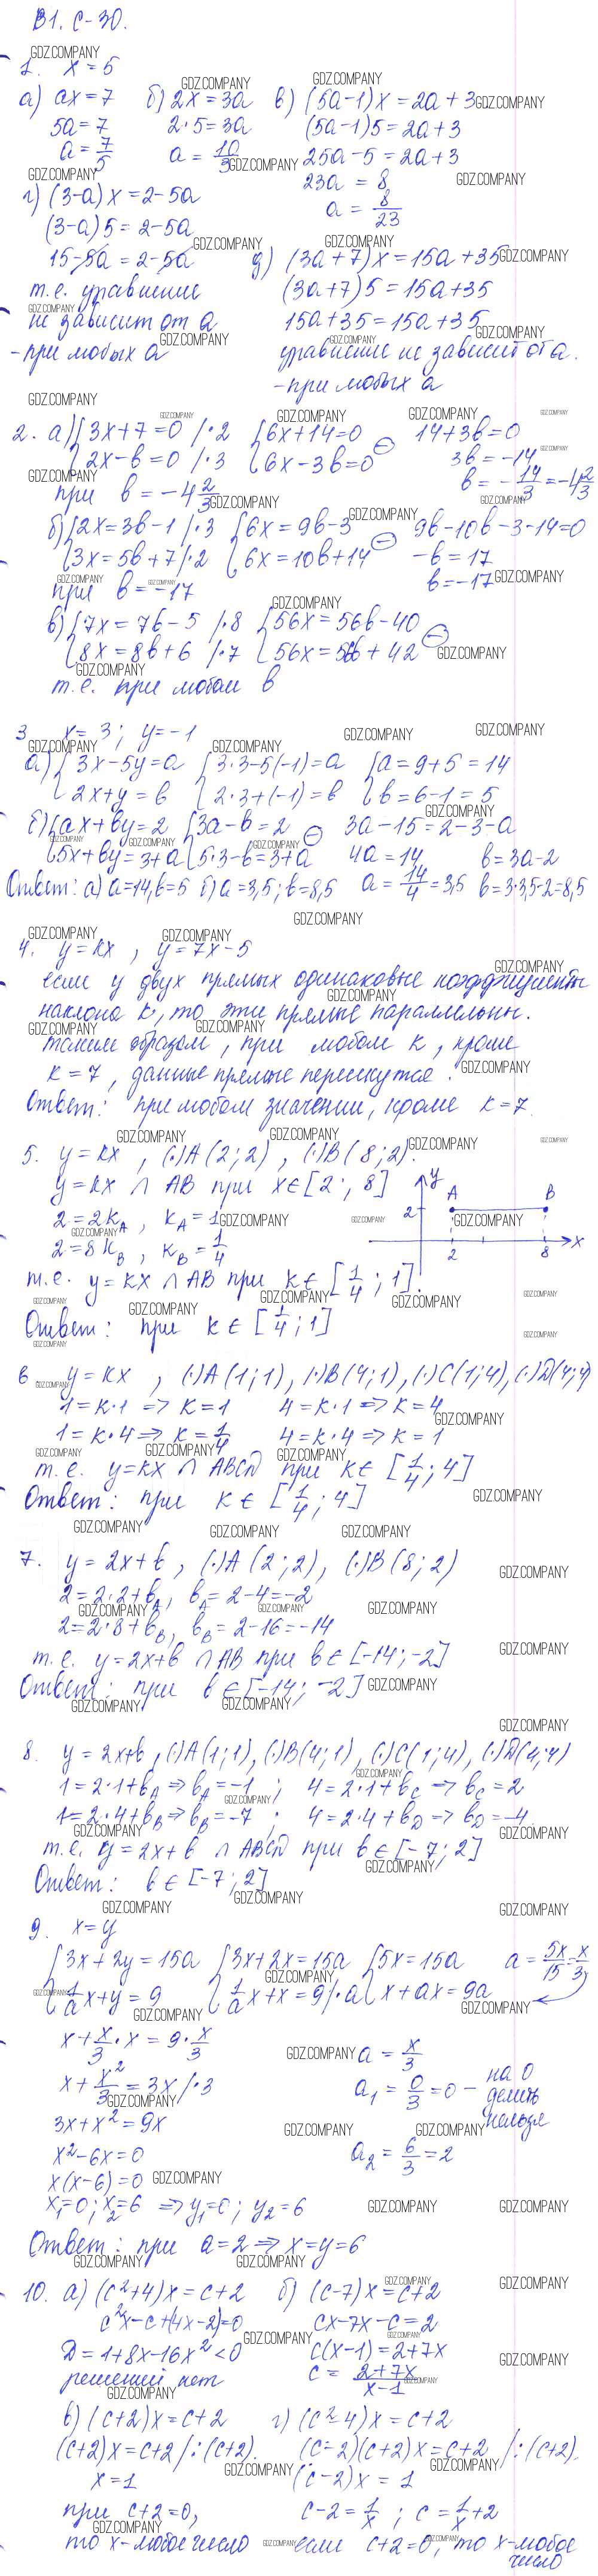 В1. С-30.
1. x = 5
а) ax = 7 б) 2x = 3a в) (5a-1)x = 2a+3
5a = 7 2·5 = 3a (5a-1)5 = 2a+3
a = 7/5 a = 10/3 25a-5 = 2a+3
23a = 8
a = 8/23
г) (3-a)x = 2-5a
(3-a)5 = 2-5a
15-5a = 2-5a
т.е. уравнение
не зависит от a
- при любых a
д) (3a+7)x = 15a+35
(3a+7)5 = 15a+35
15a+35 = 15a+35
уравнение не зависит от a.
- при любых a
2. а) {3x+7=0 /·2 {6x+14=0 14+3b=0
{2x-b=0 /·3 {6x-3b=0 ⊖ 3b=-14
при b = -4 2/3 b = -14/3 = -4 2/3
б) {2x=3b-1 /·3 {6x=9b-3 9b-10b-3-14=0
{3x=5b+7 /·2 {6x=10b+14 ⊖ -b=17
при b=-17 b=-17
в) {7x=7b-5 /·8 {56x=56b-40
{8x=8b+6 /·7 {56x=56b+42 ⊖
т.е. при любом b
3 x=3; y=-1
а) {3x-5y=a {3·3-5(-1)=a {a=9+5=14
{2x+y=b {2·3+(-1)=b {b=6-1=5
б) {ax+by=2 {3a-b=2 ⊖ 3a-15=2-3-a
{5x+by=3+a {5·3-b=3+a 4a=14 b=3a-2
Ответ: а) a=14, b=5 б) a=3,5; b=8,5 a=14/4=3,5 b=3·3,5-2=8,5
4. y=kx, y=7x-5
если у двух прямых одинаковые коэффициенты
наклона k, то эти прямые параллельны.
таким образом, при любом k, кроме
k=7, данные прямые пересекутся.
Ответ: при любом значении, кроме k=7
5. y=kx, (·)A(2;2), (·)B(8;2).
y=kx ∩ AB при x∈[2;8]
2=2k_A, k_A=1
2=8k_B, k_B=1/4
т.е. y=kx ∩ AB при k∈[1/4;1].
Ответ: при k∈[1/4;1]
y
A B
2
2 8 x
6 y=kx, (·)A(1;1), (·)B(4;1), (·)C(1;4), (·)D(4;4)
1=k·1 => k=1 4=k·1 => k=4
1=k·4 => k=1/4 4=k·4 => k=1
т.е. y=kx ∩ ABCD при k∈[1/4;4]
Ответ: при k∈[1/4;4]
7. y=2x+b, (·)A(2;2), (·)B(8;2)
2=2·2+b_A, b_A=2-4=-2
2=2·8+b_B, b_B=2-16=-14
т.е. y=2x+b ∩ AB при b∈[-14;-2]
Ответ: при b∈[-14;-2]
8. y=2x+b, (·)A(1;1), (·)B(4;1), (·)C(1;4), (·)D(4;4)
1=2·1+b_A => b_A=-1; 4=2·1+b_C => b_C=2
1=2·4+b_B => b_B=-7; 4=2·4+b_D => b_D=-4.
т.е. y=2x+b ∩ ABCD при b∈[-7;2]
Ответ: b∈[-7;2]
9. x=y
{3x+2y=15a {3x+2x=15a {5x=15a a=5x/15=x/3
{1/a x+y=9 {1/a x+x=9 /·a {x+ax=9a
x+x/3·x=9·x/3 a=x/3
x+x²/3=3x /·3 a₁=0/3=0 - на 0 делить нельзя
3x+x²=9x
x²-6x=0 a₂=6/3=2
x(x-6)=0
x₁=0; x₂=6 => y₁=0; y₂=6
Ответ: при a=2 => x=y=6
10. а) (c²+4)x=c+2 б) (c-7)x=c+2
c²x-c+(4x-2)=0 cx-7x-c=2
D=1+8x-16x²<0 c(x-1)=2+7x
решений нет c=2+7x/x-1
в) (c+2)x=c+2 г) (c²-4)x=c+2
(c+2)x=c+2 /:(c+2). (c-2)(c+2)x=c+2 /:(c+2).
x=1 (c-2)x=1
при c+2=0, c-2=1/x; c=1/x+2
то x-любое число если c+2=0, то x-любое
число
GDZ.COMPANY